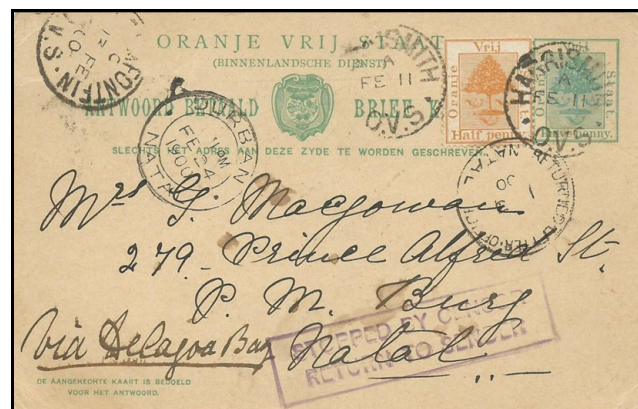 ORANJE VRIJ STAAT
(BINNENLANDSCHE DIENST)
ANTWOORD BETAALD BRIEFK
SLECHTS HET ADRES AAN DEZE ZYDE TE WORDEN GESCHREVEN
Vrij
Oranje
Half penny.
Staat.
HARRISMITH
A
FE 11
O.V.S.
HARRISMITH
A
FE 11
O.V.S.
FONTEIN
C
FE
DURBAN
FE 24
NATAL
RETURNED LETTER OFFICE
NATAL
Mrs G. Macgowan
279 Prince Alfred St.
P. M. Burg
Natal
Via Delagoa Bay
STOPPED BY CENSOR
RETURN TO SENDER
DE AANGEHECHTE KAART IS BEDOELD
VOOR HET ANTWOORD.